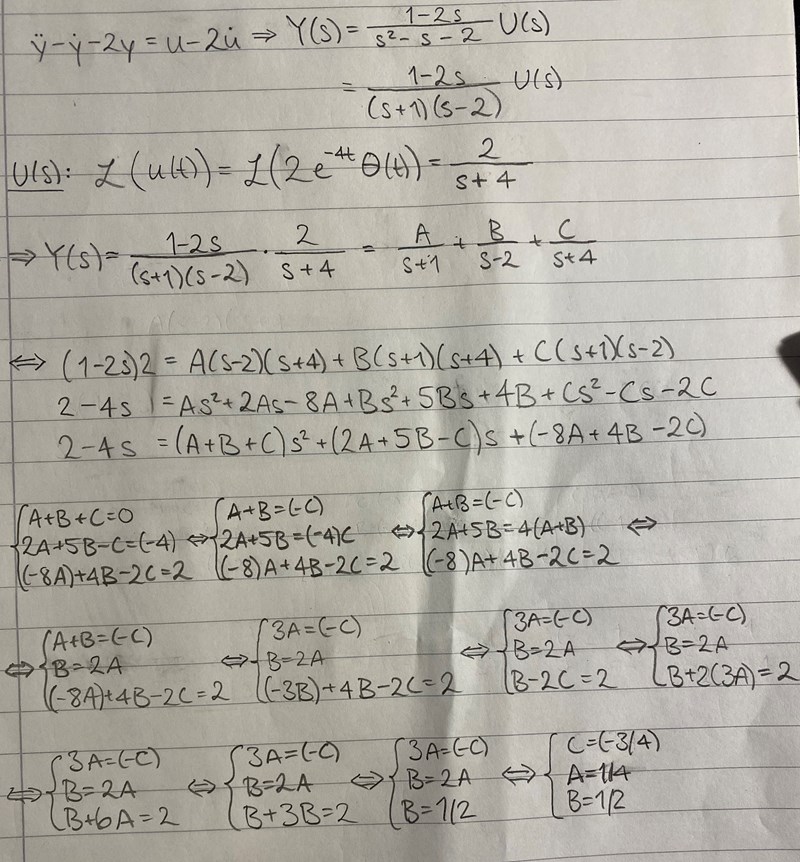 ÿ-ẏ-2y = u-2u̇ ⇒ Y(s) = (1-2s)/(s²-s-2) U(s)
= (1-2s)/((s+1)(s-2)) U(s)
U(s): ℒ(u(t)) = ℒ(2e^(-4t) θ(t)) = 2/(s+4)
⇒ Y(s) = (1-2s)/((s+1)(s-2)) · 2/(s+4) = A/(s+1) + B/(s-2) + C/(s+4)
⇔ (1-2s)2 = A(s-2)(s+4) + B(s+1)(s+4) + C(s+1)(s-2)
2-4s = As²+2As-8A+Bs²+5Bs+4B+Cs²-Cs-2C
2-4s = (A+B+C)s²+(2A+5B-C)s+(-8A+4B-2C)
{A+B+C=0
2A+5B-C=(-4)
(-8A)+4B-2C=2
⇔ {A+B=(-C)
2A+5B=(-4)C
(-8)A+4B-2C=2
⇔ {A+B=(-C)
2A+5B=4(A+B)
(-8)A+4B-2C=2
⇔
⇔ {A+B=(-C)
B=2A
(-8A)+4B-2C=2
⇔ {3A=(-C)
B=2A
(-3B)+4B-2C=2
⇔ {3A=(-C)
B=2A
B-2C=2
⇔ {3A=(-C)
B=2A
B+2(3A)=2
⇔ {3A=(-C)
B=2A
B+6A=2
⇔ {3A=(-C)
B=2A
B+3B=2
⇔ {3A=(-C)
B=2A
B=1/2
⇔ {C=(-3/4)
A=1/4
B=1/2